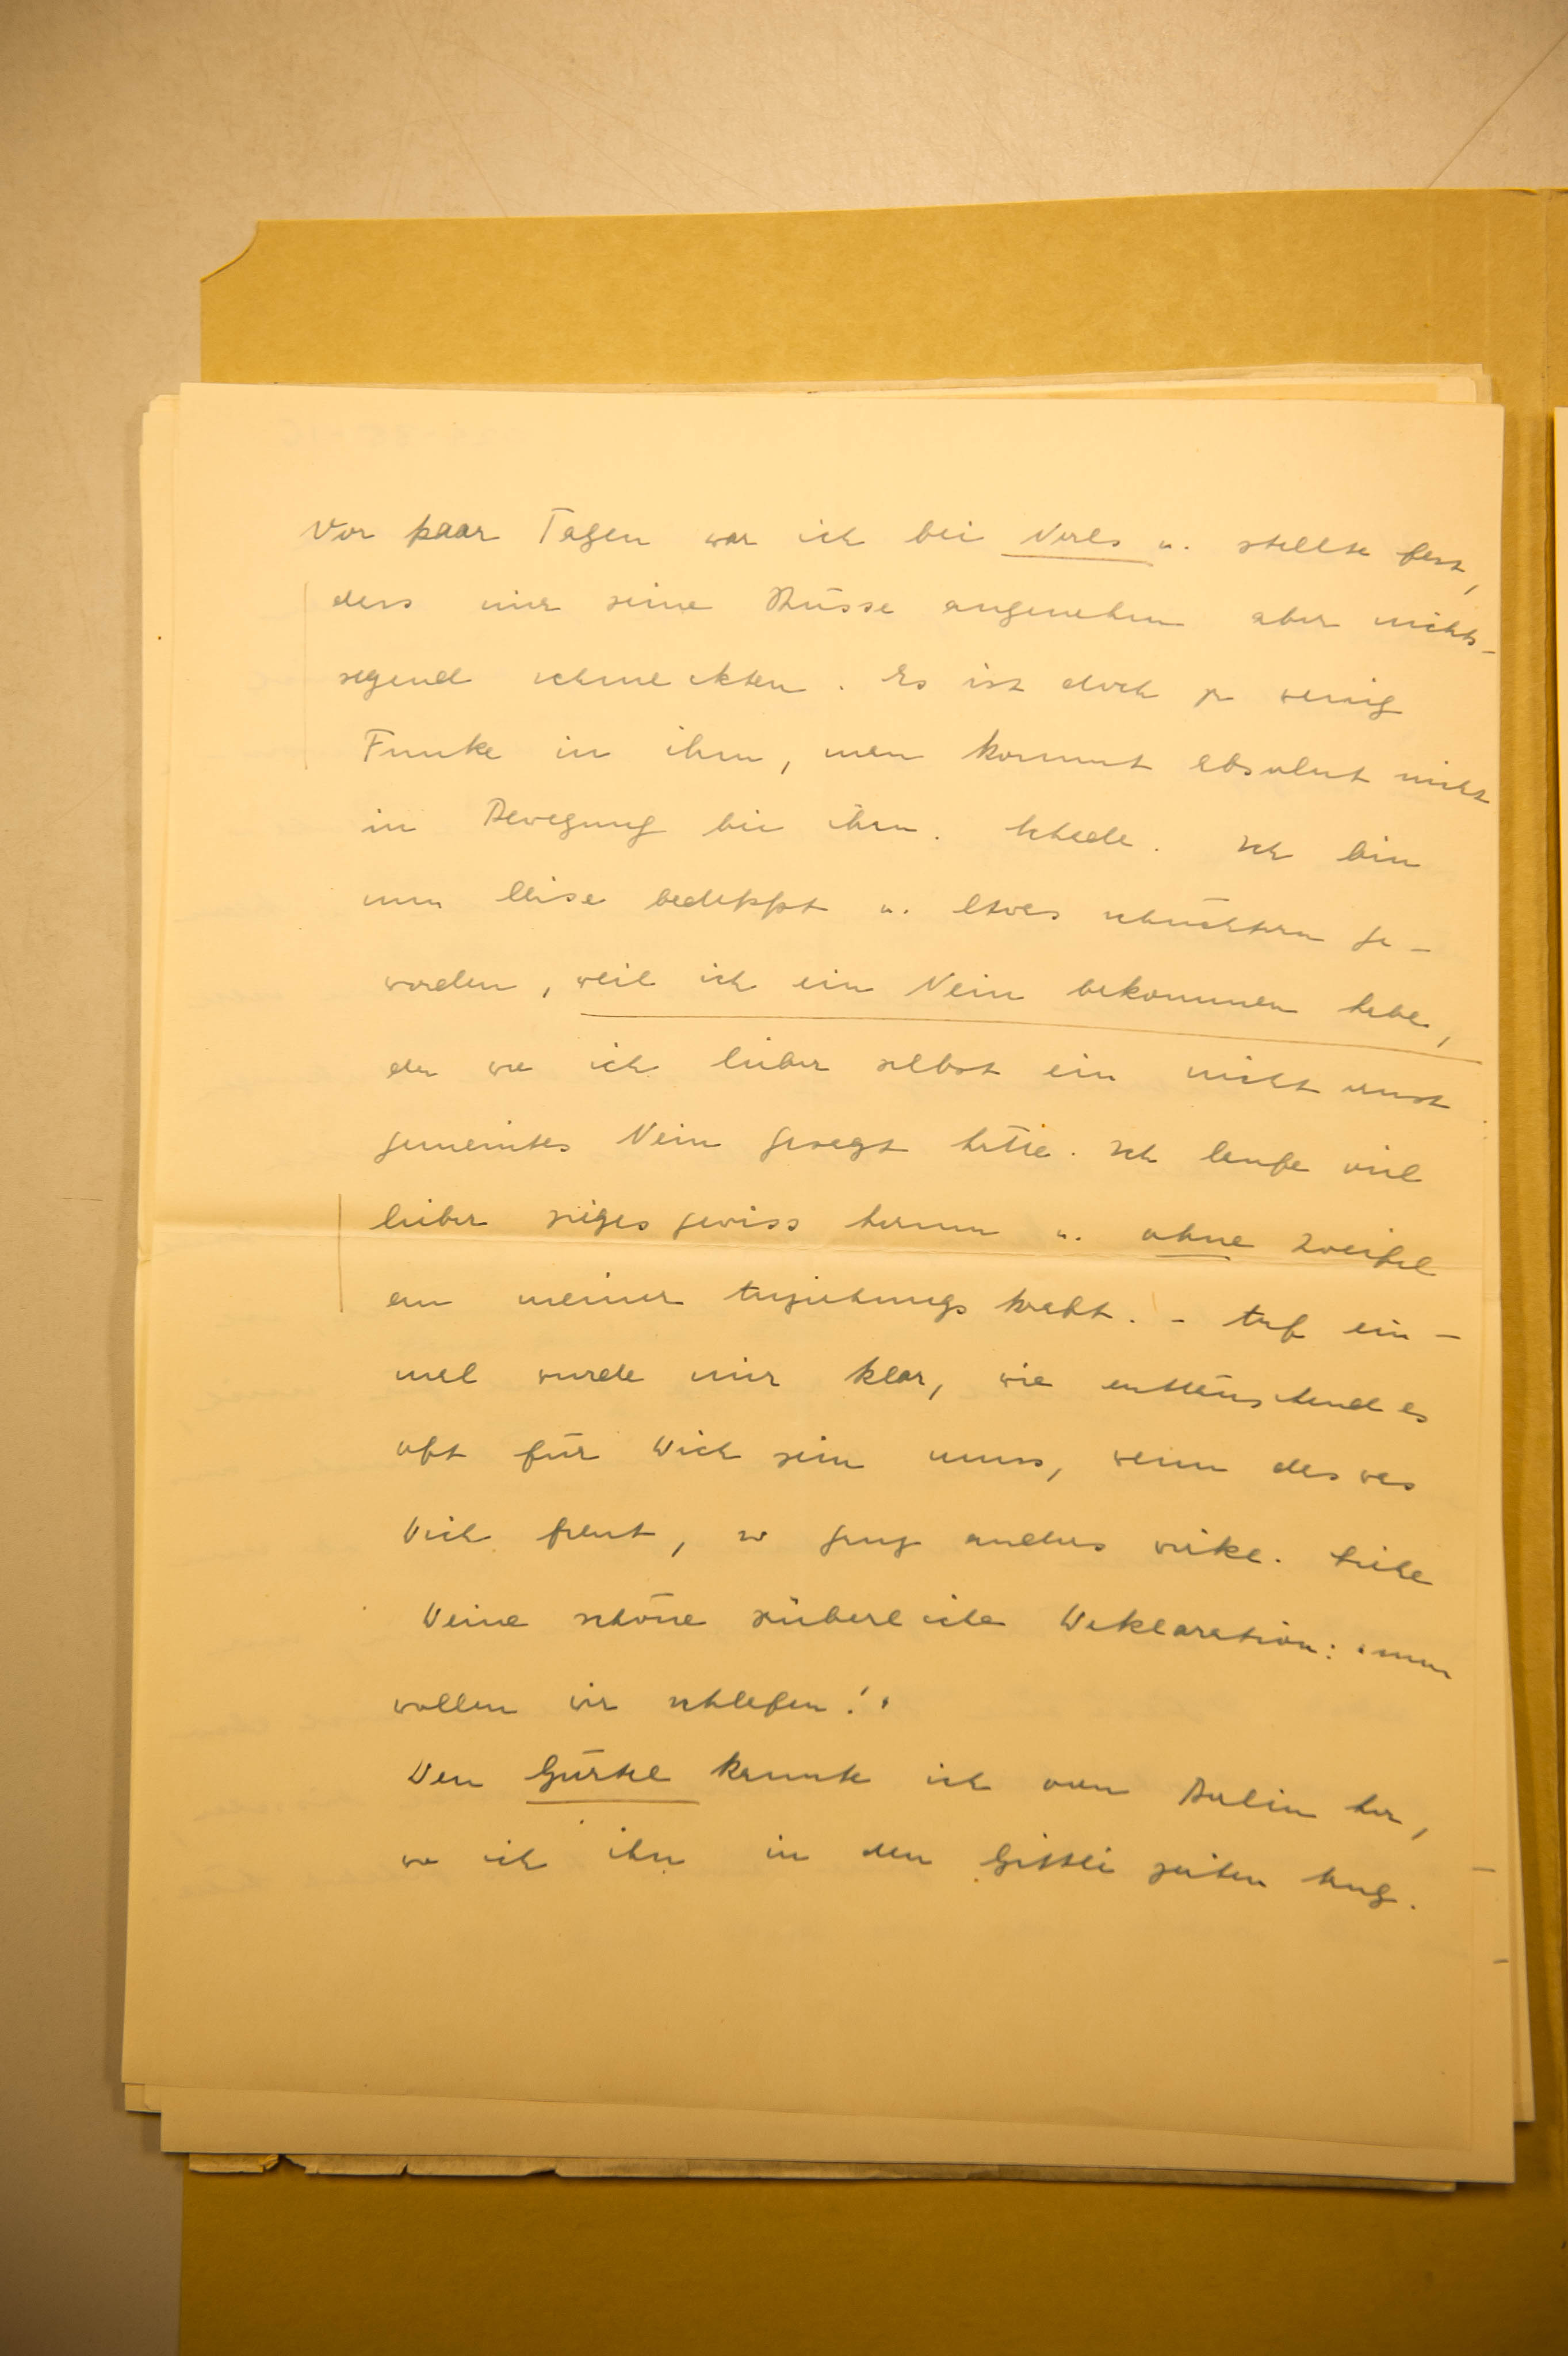 Vor paar Tagen war ich bei u. stellte fest,
dass mir seine Küsse angenehm aber nichts-
sagend schmeckten. Es ist doch zu wenig
Funke in ihm, man kommt absolut nicht
in Bewegung bei ihm. Schade. Ich bin
nun leise bedeppt u. etwas schüchtern ge-
worden, weil ich ein Nein bekommen habe,
da wo ich lieber selbst ein nicht ernst
gemeintes Nein gesagt hätte. Ich laufe viel
lieber siegesgewiss herum u. ohne Zweifel
an meiner Anziehungskraft. - Auf ein-
mal wurde mir klar, wie enttäuschend es
oft für Dich sein muss, wenn das was
Dich freut, so ganz anders wirkt. Siehe
Deine schöne Deklaration: "nun
wollen wir schlafen!"
Den Gürtel kannte ich von Berlin her,
wo ich ihn in den zeiten trug.